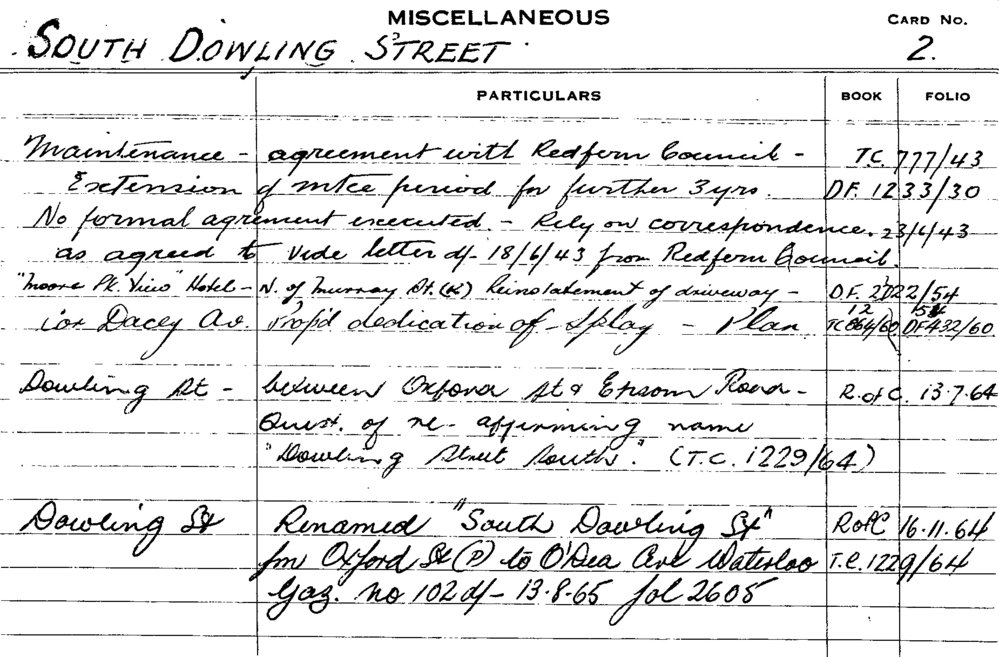 MISCELLANEOUS
CARD NO.
SOUTH DOWLING STREET
2.
PARTICULARS BOOK FOLIO
Maintenance - agreement with Redfern Council - T.C. 777/43
Extension of mtce period for further 3 yrs. D.F. 1233/30
No formal agreement executed. - Rely on correspondence. 23/6/43
as agreed to vide letter d/- 18/6/43 from Redfern Council.
"Moore Pk. View" Hotel - N. of Murray St. (K) Reinstatement of driveway - D.F. 2722/54
12 54
cor Dacey Av. Prop'd dedication of Splay - Plan TC 864/60 DF 432/60
Dowling St - between Oxford St & Epsom Road - R. of C. 13.7.64
Quest. of re-affirming name
"Dowling Street South". (T.C. 1229/64)
Dowling St Renamed "South Dowling St" RofC 16.11.64
fm Oxford St (P) to O'Dea Ave Waterloo T.C. 1229/64
Gaz. no 102 d/- 13.8.65 fol 2605